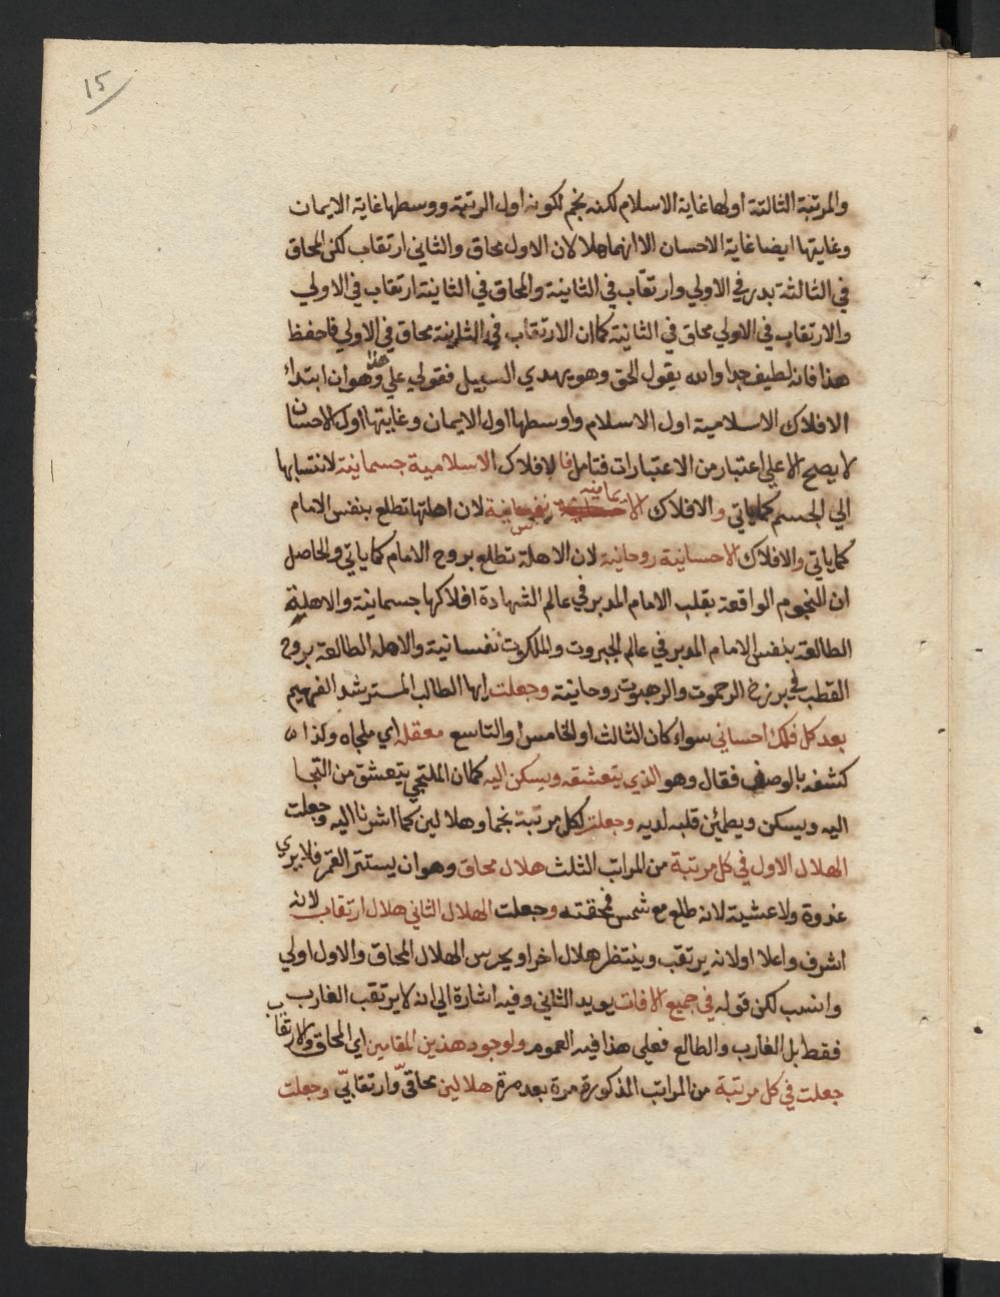 15
والمرتبة الثالثة اولها غاية الاسلام لكنه نجم لكونه اول الرتبة ووسطها غاية الايمان
وغايتها ايضا غاية الاحسان الا انهما هلالان الاول محاق والثاني ارتقاب لكن المحاق
في الثالثة بدر في الاولي وارتقاب في الثانية والمحاق في الثانية ارتقاب في الاولي
والارتقاب في الاولي محاق في الثانية كما ان الارتقاب في الثانية محاق في الاولي فاحفظ
هذا فانه لطيف جدا والله يقول الحق وهو يهدي السبيل فقولي علي هذا وهو ان ابتداء
الافلاك الاسلامية اول الاسلام واوسطها اول الايمان وغايتها اول الاحسان
لا يصح الا علي اعتبار من الاعتبارات فتامل فالافلاك الاسلامية جسمانية لانتسابها
الي الجسم كما ياتي والافلاك الايمانية نفسانية لان اهلتها تطلع بنفس الامام
كما ياتي والافلاك الاحسانية روحانية لان الاهلة تطلع بروح الامام كما ياتي والحاصل
ان النجوم الواقعة بقلب الامام المدبر في عالم الشهادة افلاكها جسمانية والاهلية
الطالعة بنفس الامام المدبر في عالم الجبروت والملكوت نفسانية والاهله الطالعة بروح
القطب في برزخ الرحموت والرهبوت روحانية وجعلت ايها الطالب المسترشد الفهيم
بعد كل فلك احساني سواء كان الثالث او الخامس او التاسع معقله اي ملجاه وكذا
كشفه بالوصف فقال وهو الذي يتعشقه ويسكن اليه كما ان الملتجي يتعشق من التجا
اليه ويسكن ويطمئن قلبه لديه وجعلت لكل مرتبة نجما وهلالين كما اشرنا اليه وجعلت
الهلال الاول في كل مرتبة من المراتب الثلث هلال محاق وهو ان يستتر القمر فلا يري
غدوة ولا عشية لانه طلع مع شمس فمحقته وجعلت الهلال الثاني هلال ارتقاب لانه
اشرف واعلا اولانه يرتقب وينتظر هلال اخر او يحرس الهلال المحاق والاول اولي
وانسب لكن قوله في جميع الافات يويد الثاني وفيه اشارة الي انه لا يرتقب الغارب
فقط بل الغارب والطالع فعلي هذا فيه العموم ولوجود هذين المقامين اي المحاق والارتقاب
جعلت في كل مرتبة من المراتب المذكورة مرة بعد مرة هلالين محاقيّ وارتقابيّ وجعلت